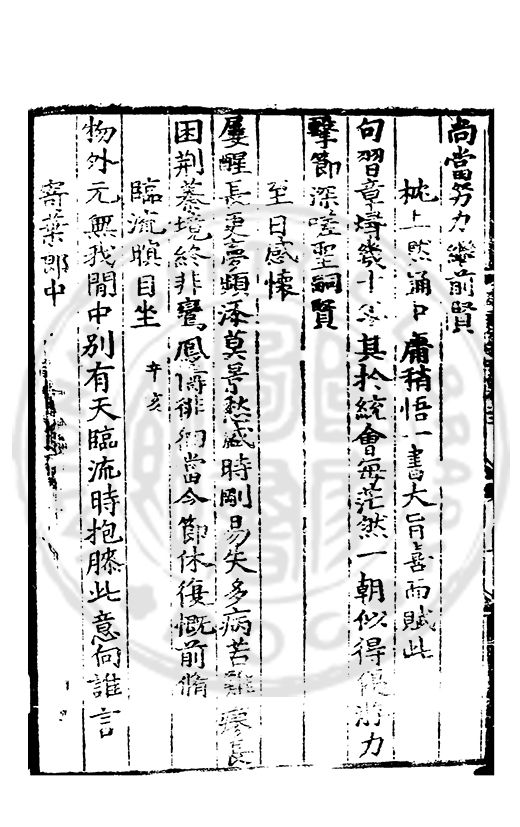 尚當努力繼前賢
枕上默誦中庸稍悟一書大旨喜而賦此
句習章㝷幾十年其於統會每茫然一朝似得復游力
擊節深嗟聖嗣賢
至日感懷
屢醒長更夢頻添莫景愁感時剛易失多病苦難瘳長
困荆蓁境終非鸞鳳儔徘徊當令節休復慨前脩
臨流瞑目坐 辛亥
物外元無我閒中別有天臨流時抱膝此意向誰言
寄葉郎中